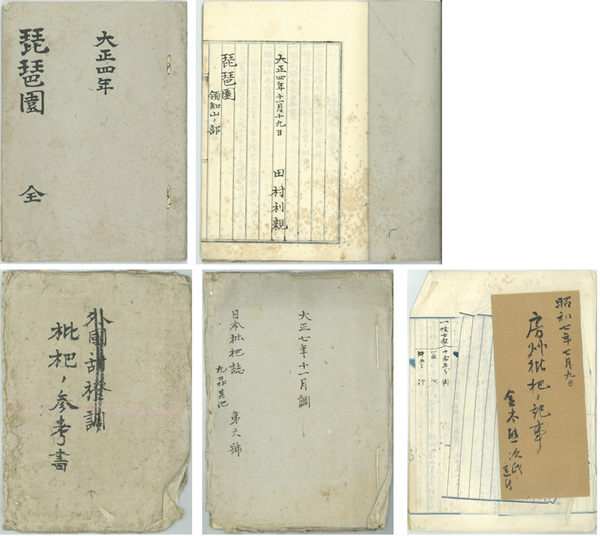 大正四年
琵琶園 全
大正四年十一月十九日
田村利親
琵琶園
領知山ノ部
外國甜橙調
枇杷ノ参考書
大正七年十一月調
日本枇杷誌 第六號
九品其他
昭和七年七月九日
房州枇杷ノ記事